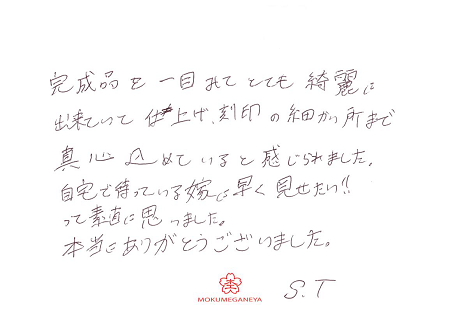 完成品を一目みてとても綺麗に
出来ていて仕上げ、刻印の細かい所まで
真心込めていると感じられました。
自宅で待っている嫁に早く見せたい!!
って素直に思いました。
本当にありがとうございました。
S.T
MOKUMEGANEYA